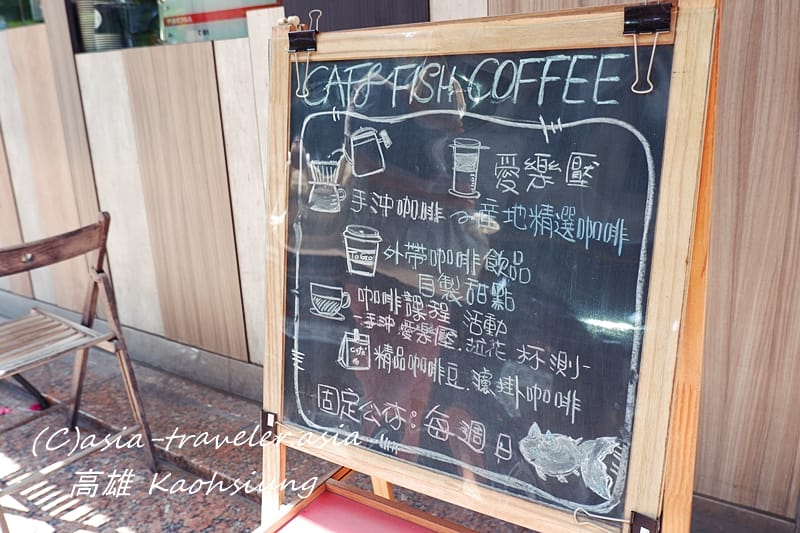 CATS FISH COFFEE
愛樂壓
手沖咖啡 產地精選咖啡
To Go
外帶咖啡飲品
自製甜點
咖啡課程 活動
-手沖.愛樂壓.拉花.杯測-
精品咖啡豆.濾掛咖啡
固定公休:每週日
(C)asia-traveler.asia
高雄 Kaohsiung